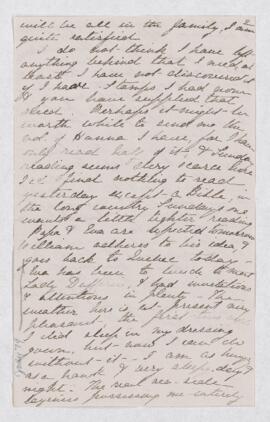 will be all in the family, I am
quite satisfied.
I do not think I have left
anything behind that I need, at
least I have not discovered it
if I have. Stamps I had none
& you have supplied that
need. Perhaps it might be
worth while to send me the
vol. I have, for I have
only read half of it & Sunday
reading seems very scarce here
I could find nothing to read
yesterday except a Bible, &
the long country Sundays one
wants a little lighter reading
Papa & Eva are expected tomorrow
William adheres to his idea &
goes back to Quebec today -
Eva has been to lunch to meet
Lady Dufferin, & had invitations
& attentions in plenty - The
weather here is at present very
pleasant, the first
I did sleep in my dressing
gown, but now I can do
without it - I am as hungry
as a hawk & very sleepy day &
night. The real sea-side
laziness possessing me entirely